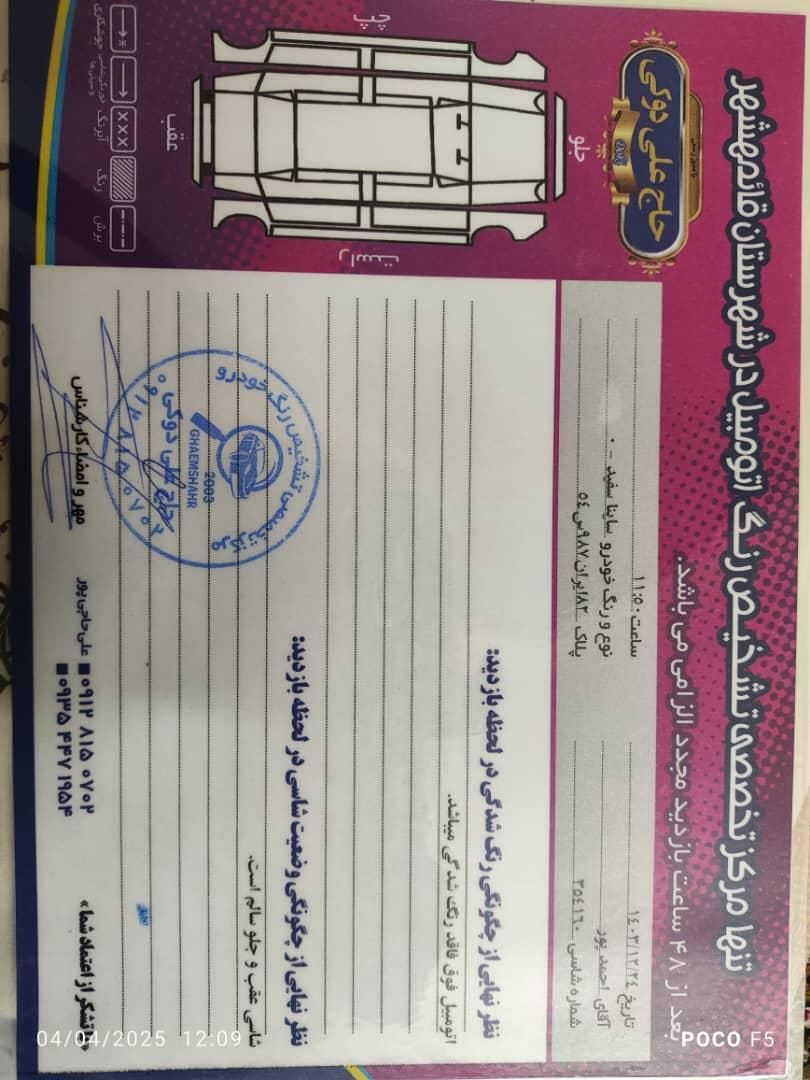 تنها مرکز تخصصی تشخیص رنگ اتومبیل در شهرستان قائم‌شهر
حاج علی دوکی
بعد از ۴۸ ساعت بازدید مجدد الزامی می باشد.
تاریخ ۱۴۰۳/۱۲/۲۴
ساعت: ۱۱:۵۰
آقای احمد پور
نوع و رنگ خودرو ساینا سفید - ۰
شماره شاسی ۳۵۴۱۶۰
پلاک ۸۲ایران۹۸۷س۵۴
جلو
عقب
چپ
راست
رنگ
آبرنگ
برش
نظر نهایی از چگونگی رنگ شدگی در لحظه بازدید:
اتومبیل فوق فاقد رنگ شدگی میباشد.
نظر نهایی از چگونگی وضعیت شاسی در لحظه بازدید:
شاسی عقب و جلو سالم است.
مرکز تخصصی تشخیص رنگ خودرو
2000
GHAEMSHAHR
حاج علی دوکی
۰۹۱۲۸۱۵۰۷۰۲
مهر و امضاء کارشناس
علی حاجی پور
۰۹۱۲ ۸۱۵ ۰۷۰۲
۰۹۳۵ ۴۴۷ ۱۹۵۴
«با تشکر از اعتماد شما»
04/04/2025 12:09
POCO F5